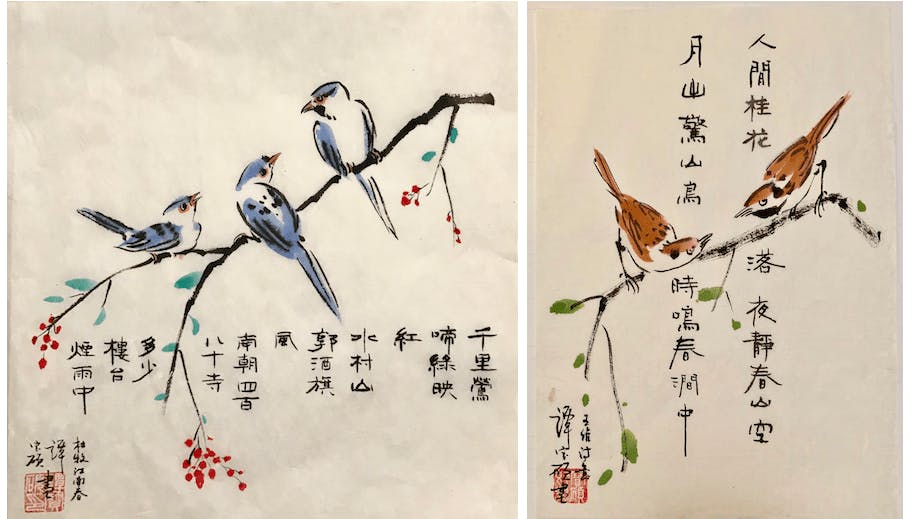 千里鶯
啼綠映
紅
水村山
郭酒旗
風
南朝四百
八十寺
多少
樓台
煙雨中
杜牧江南春
譚
書
人閒桂花落夜靜春山空
月出驚山鳥時鳴春澗中
王維
譚
書